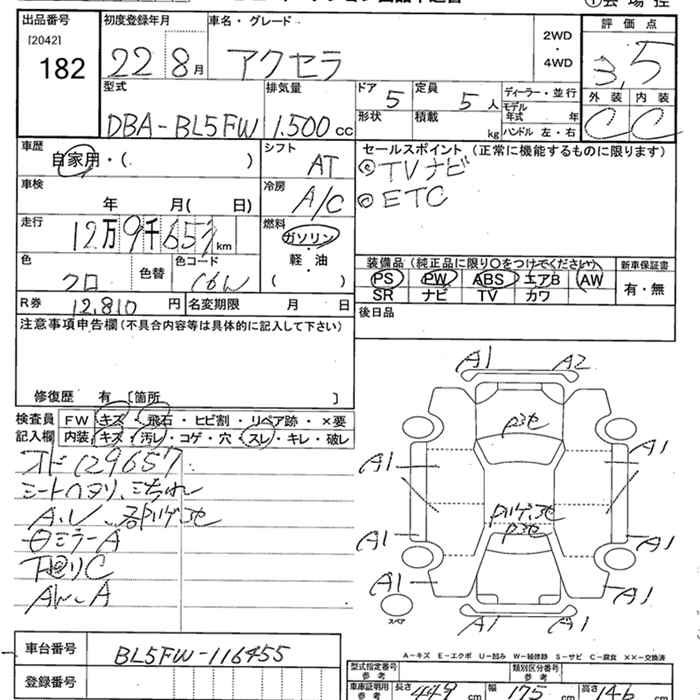 出品番号
[2042]
182
初度登録年月
22 8月
車名・グレード
アクセラ
2WD
・
4WD
評価点
3.5
外装 内装
C C
型式
DBA-BL5FW
排気量
1.500cc
ドア 5
形状
定員 5人
積載 kg
ディーラー・並行
モデル年式 年
ハンドル 左・右
車歴
自家用・( )
シフト
AT
セールスポイント (正常に機能するものに限ります)
◎TVナビ
◎ETC
車検
年 月( 日)
冷房
A/C
走行
12万9千657km
燃料
ガソリン
・
軽・油
( )
色
クロ
色替
色コード
16W
装備品(純正品に限り○をつけてください)
PS PW ABS エアB AW
SR ナビ TV カワ
新車保証書
有・無
R券 12,810円
名変期限 月 日
後日品
注意事項申告欄(不具合内容等は具体的に記入して下さい)
修復歴 有 〔箇所 〕
検査員記入欄
FW キズ・飛石・ヒビ割・リペア跡・×要
内装・キズ・汚レ・コゲ・穴・スレ・キレ・破レ
オド129657
シートヘタリ、
A.U
ミラーA
C
AW-A
A1 A2
A1 A1
A1 A1
A1 A1
A1 A1
スペア
A-キズ E-エクボ U-凹み W-補修跡 S-サビ C-腐食 ××-交換済
車台番号
BL5FW-116455
登録番号
型式指定番号
参考
類別区分番号
参考
車庫証明用
参考
長さ 449 cm
幅 175 cm
高さ 146 cm